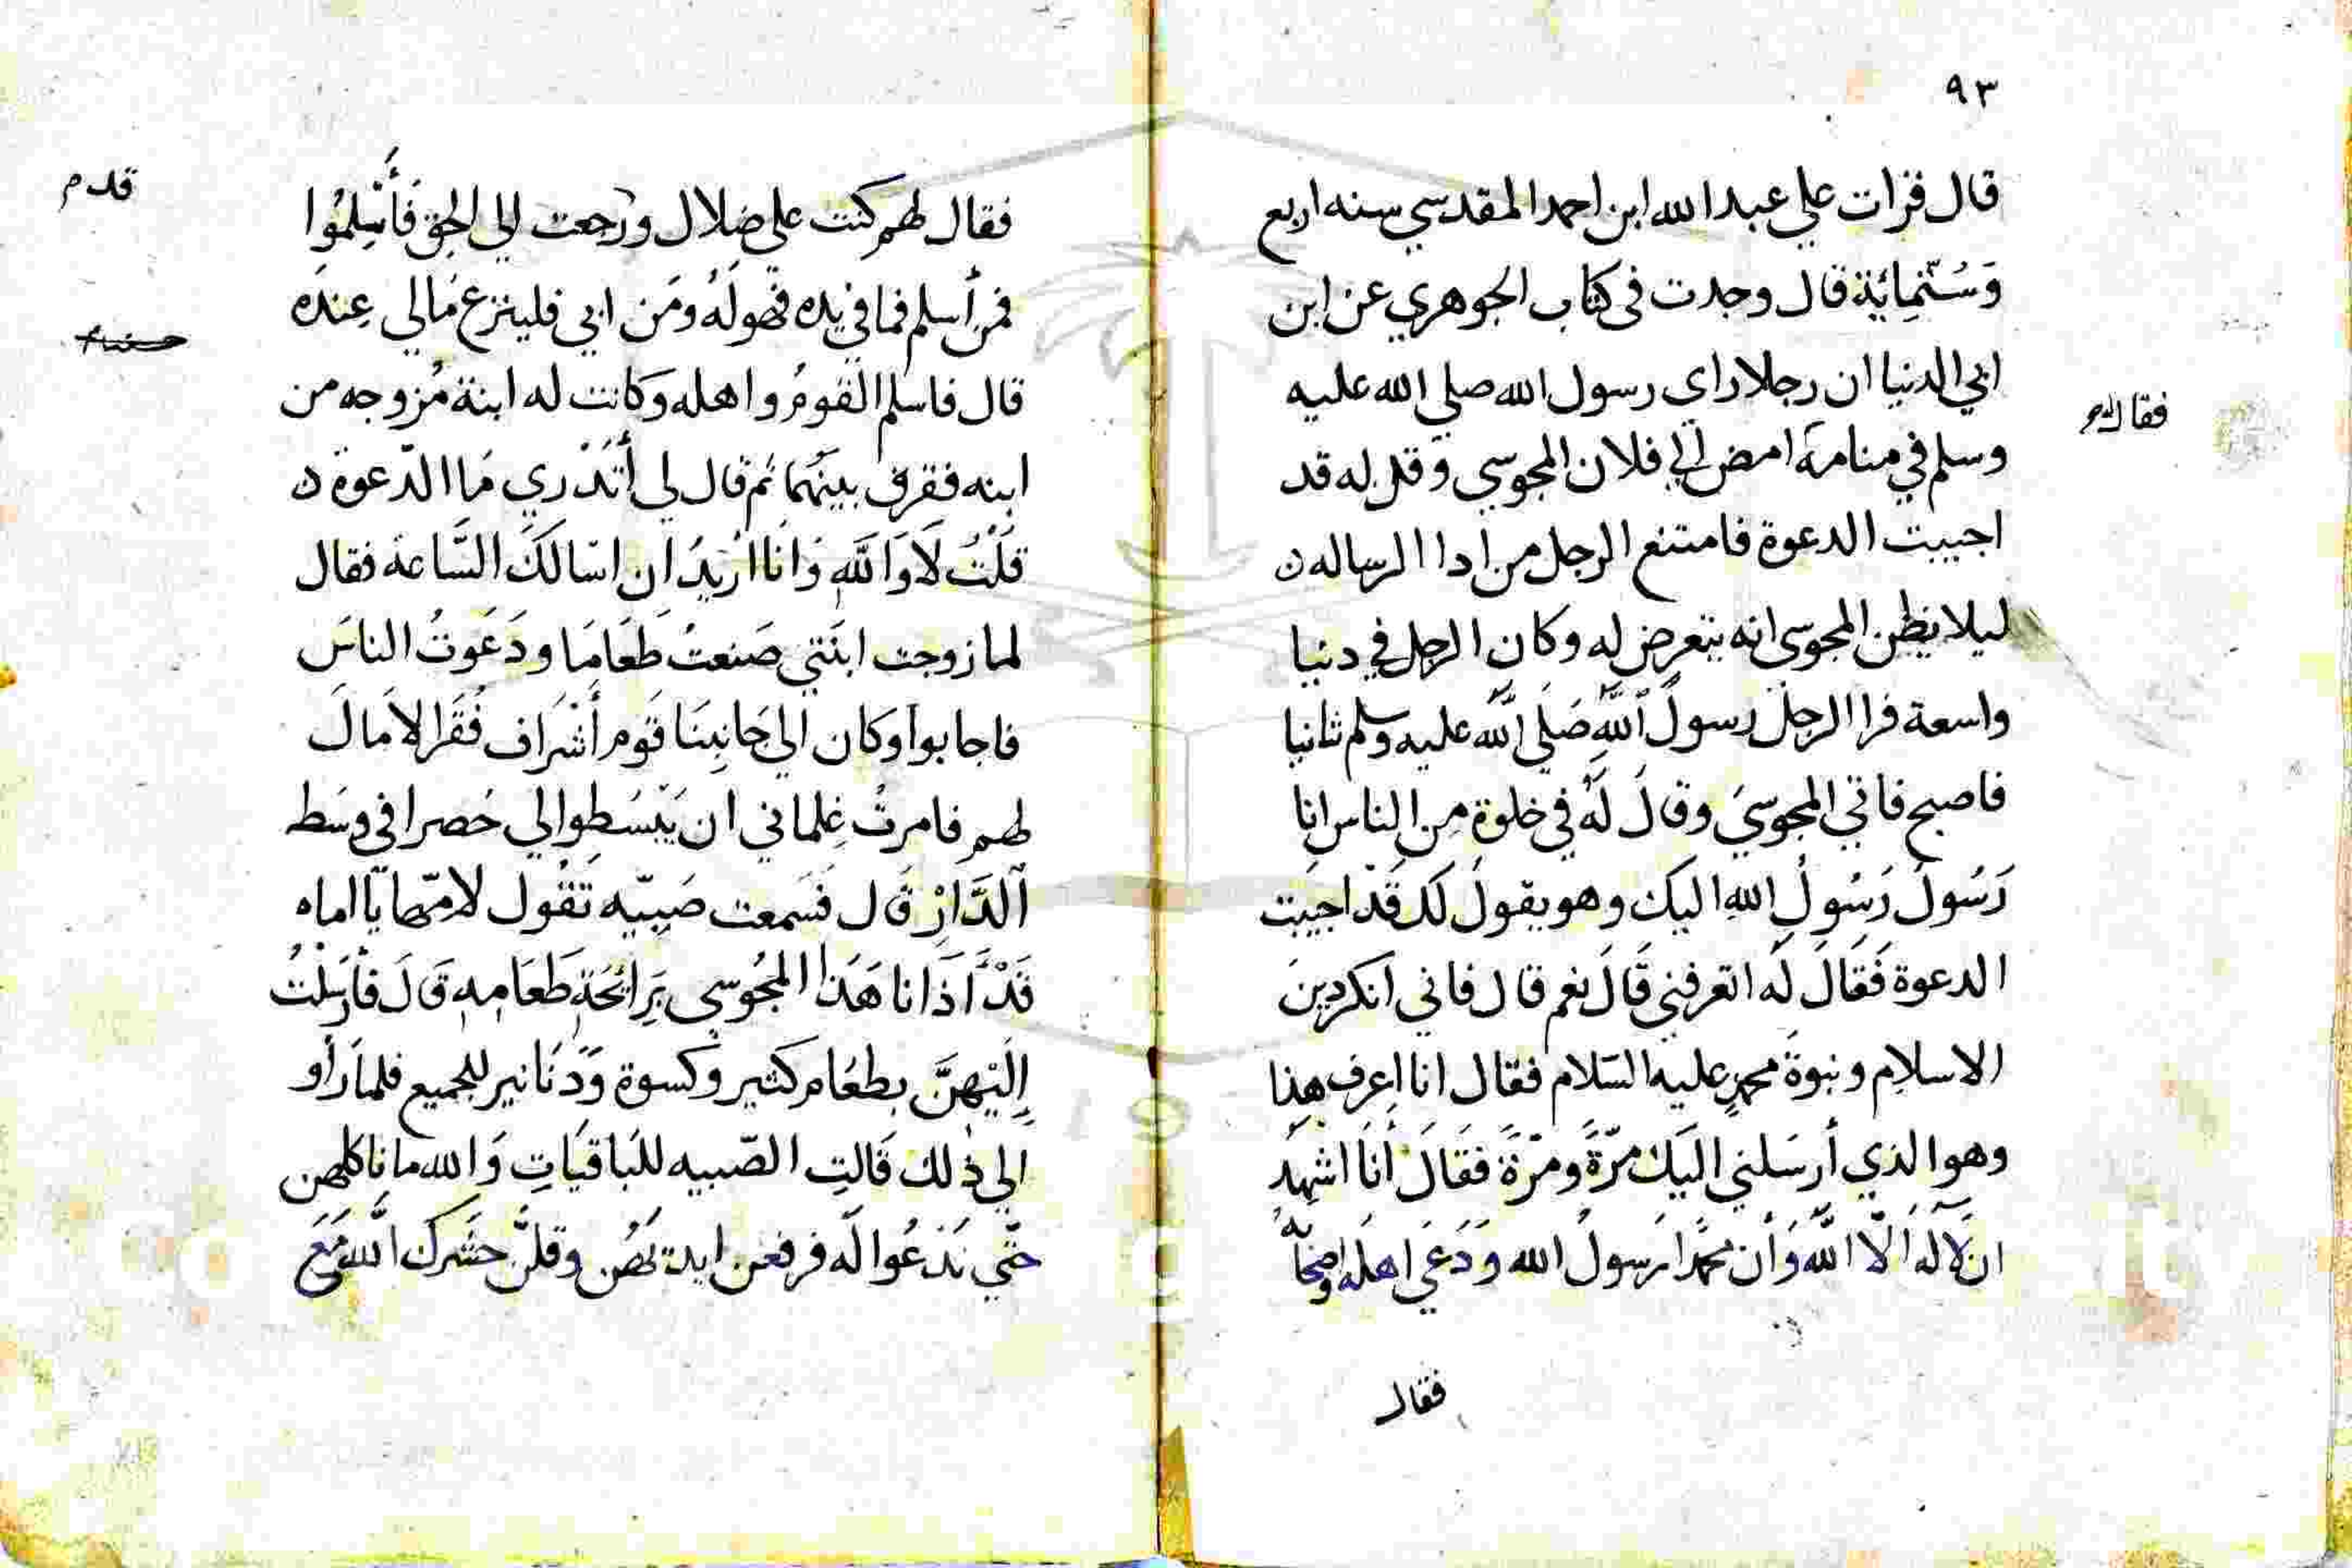 ٩٣
قال قرات علي عبد الله ابن احمد المقدسي سنه اربع
وَسُتّمِائِة قال وجدت فى كتاب الجوهري عن ابن
ابي الدنيا ان رجلا راي رسول الله صلي الله عليه
فقال له
وسلم في منامه امض الي فلان المجوسي وقل له قد
اجيبت الدعوة فامتنع الرجل من ادا الرساله ن
ليلا يظن المجوسى انه يتعرض له وكان الرجل في دنيا
واسعة فرا الرجل رسول اللَّه صَلَي اللَّه عليه وسلم ثانيا
فاصبح فاتي المجوسيَ وقال لَهُ في خلوة مِن الناس انا
رَسُولُ رَسُولِ اللهِ اليك وهو يقولُ لك قَدْ اجيبَت
الدعوة فَقَالَ لَه اتعرفني قَالَ نعم قال فاني انكر دينَ
الاسلامِ ونبوةَ محمدٍ عليه السَلام فقال انا اعرف هذا
وهو الذي أرسَلني اليَك مَرّةً ومَرّةً فقَالَ أنَا اشهَدُ
ان لَا اله الّا اللَّه وَأن محمَّدا رَسولُ الله وَدَعَي اهلَه واصحَابَه
فقال
فقال لهم كنت على ضلال ورجعت الي الحق فَأَسْلِمُوا
قدم
فمن أسلم فما في يده فهو لَهُ ومَن ابي فلينزع مَالي عِندَه
قال فاسلم القومُ واهله وَكانت له ابنة مُزوجه من
ابنه ففرق بينَهُما ثم قال لي أَتَدْري مَا الدّعوة ن
قُلْتُ لَا وَاللَّهِ وَانَا اُرَيدُ ان اسَالَكَ السَّاعة فقال
لما زوجت ابنَتي صَنعتُ طَعَامَا ودَعَوتُ الناسَ
فاجابوا وَكان الي جَانِبنَا قَوم أَشْرَاف فُقَرا لَا مَالَ
لهم فامرتُ غِلماني ان يَبْسُطِوا لي حُصرا في وسَط
الدَّارْ قَال فسَمعت صَبِيّه تَقُول لامّها يَا اماه
قَدْ أَذَانا هَذا المجُوسي بَرِايحَةِ طَعَامِهِ قَالَ فأرسَلْتُ
إِلَيْهنَّ بطعَام كثير وكسوة وَدَنَانير للجميع فلما رَأَو
الي ذلك قَالتِ الصّبيه للبَاقيَاتِ وَالله ما ناكلهن
حتّي نَدْعُوا لَه فرفعن ايديَهُن وقلنَ حشَرك اللَّه مَعَ